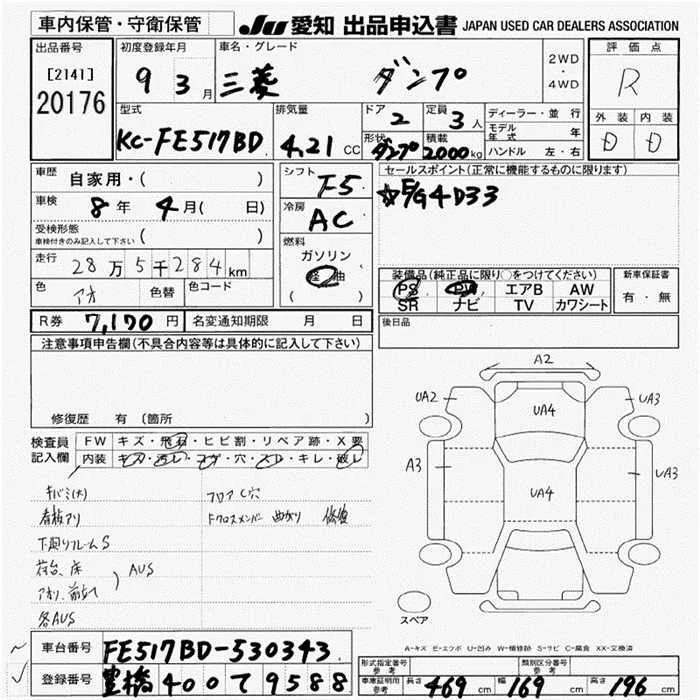 車内保管・守衛保管
JU 愛知 出品申込書 JAPAN USED CAR DEALERS ASSOCIATION
出品番号 [2141] 20176
初度登録年月 9 3月
車名・グレード 三菱 ダンプ
2WD・4WD
評価点 R
外装 D 内装 D
型式 KC-FE517BD
排気量 4,21 CC
ドア 2
定員 3人
形状 ダンプ
積載 2000kg
ディーラー・並行
モデル年式 年
ハンドル 左・右
車歴 自家用・( )
車検 8年 4月( 日)
受検形態 車検付きのみ記入して下さい ( )
走行 28万5千284km
色 アオ 色替 色コード
シフト F5
冷房 AC
燃料 ガソリン 軽油 ( )
セールスポイント(正常に機能するものに限ります)
☆E/G4D33
装備品(純正品に限り○をつけてください)
PS PW エアB AW
SR ナビ TV カワシート
新車保証書 有・無
R券 7,170円 名変通知期限 月 日
後日品
注意事項申告欄(不具合内容等は具体的に記入して下さい)
修復歴 有(箇所
検査員記入欄
FW キズ・飛石・ヒビ割・リペア跡・X要
内装 キズ・汚レ・コゲ・穴・スレ・キレ・破レ
キバミ(大)
フロアC穴
看板アリ
Fクロスメンバー曲がり 修復
下廻りフレームS
荷台、床
AUS
各AUS
A2
UA2 UA4 UA3
A3 UA4 UA3
スペア
A-キズ E-エクボ U-凹み W-補修跡 S-サビ C-腐食 XX-交換済
車台番号 FE517BD-530343
登録番号 豊橋 400 て 9588
形式指定番号 参考
類別区分番号 参考
車庫証明用 参考 長さ 469 cm 幅 169 cm 高さ 196 cm